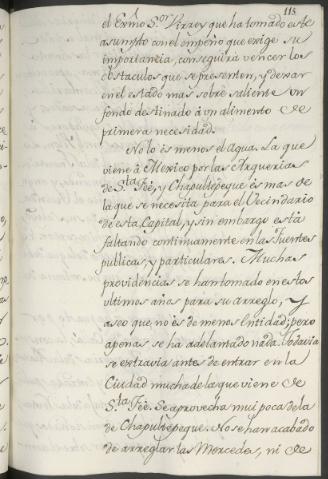 113
el Exmo Sor Virrey que ha tomado este
asumpto con el empeño que exige su
importancia, conseguirá vencer los
obstaculos que se presenten, y dexar
en el estado mas sobre saliente un
fondo destinado á un alimento de
primera necesidad.
No lo és menos el agua. La que
viene á Mexico por las Arquerias
de Sta Feé, y Chapultepeque és mas de
la que se necesita para el Vecindario
de esta Capital, y sin embargo está
faltando continuamente en las Fuentes
publicas, y particulares. Muchas
providencias se han tomado en estos
ultimos años para su arreglo, y
aseo que no és de menos Entidad; pero
apenas se ha adelantado nada. Todavia
se extravia antes de entrar en la
Ciudad mucha de la que viene de
Sta Feé. Se aprovecha mui poca de la
de Chapultepeque. No se han acabado
de arreglar las Mercedes, ni de